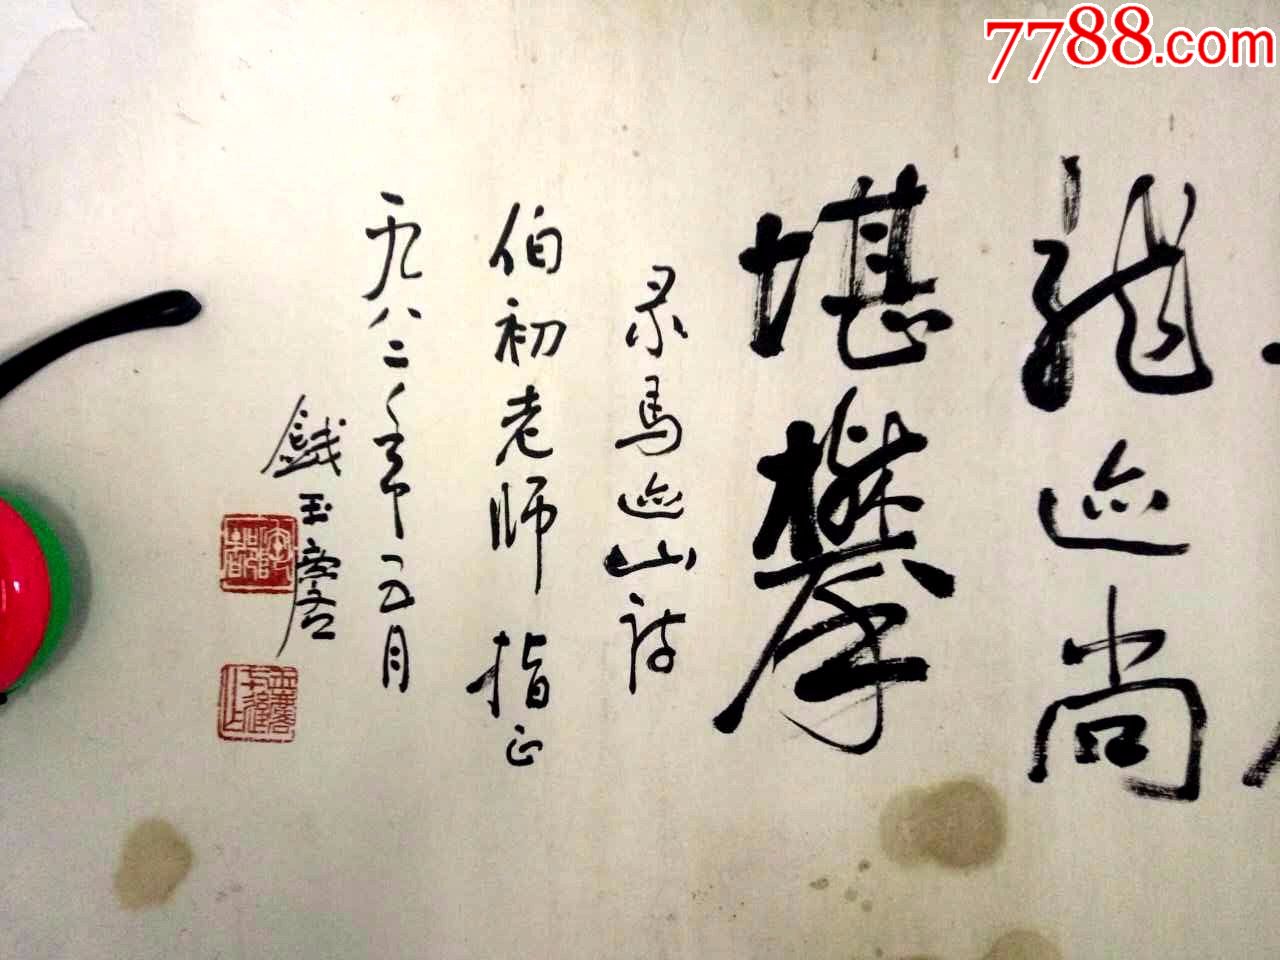 7788.com
龙迹尚
堪攀
录马迹山诗
伯初老师 指正
一九八二年五月
钱玉麐